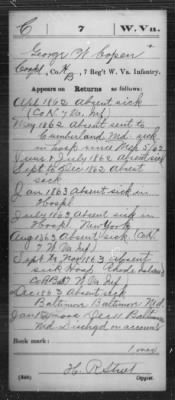 C | 7 | W. Va.
George W Copen
Corpl, Co. H B, 7 Reg't W. Va. Infantry.
Appears on Returns as follows:
Apl 1862 Absent sick
(Co N 7 Va Inf)
May 1862 Absent sent to
Cumberland Md sick
in hosp since May 5/62
June & July 1862 Absent sick
Sept to Dec 1862 Absent
sick
Jan 1863 absent sick in
Hospl
July 1863 absent sick in
Hospl New York
Aug 1863 Absent sick (Co N
7 W Va Inf)
Sept & Nov 1863 absent
sick Hosp Rhode Island
Co B Bat 7 W Va Inf)
Dec 1863 Absent sick
Baltimore Baltimore Md
Jan 1864 Dec 11 Baltimore
Md Dischgd on account
Book mark:
H. R. Street
(546) Copyist.